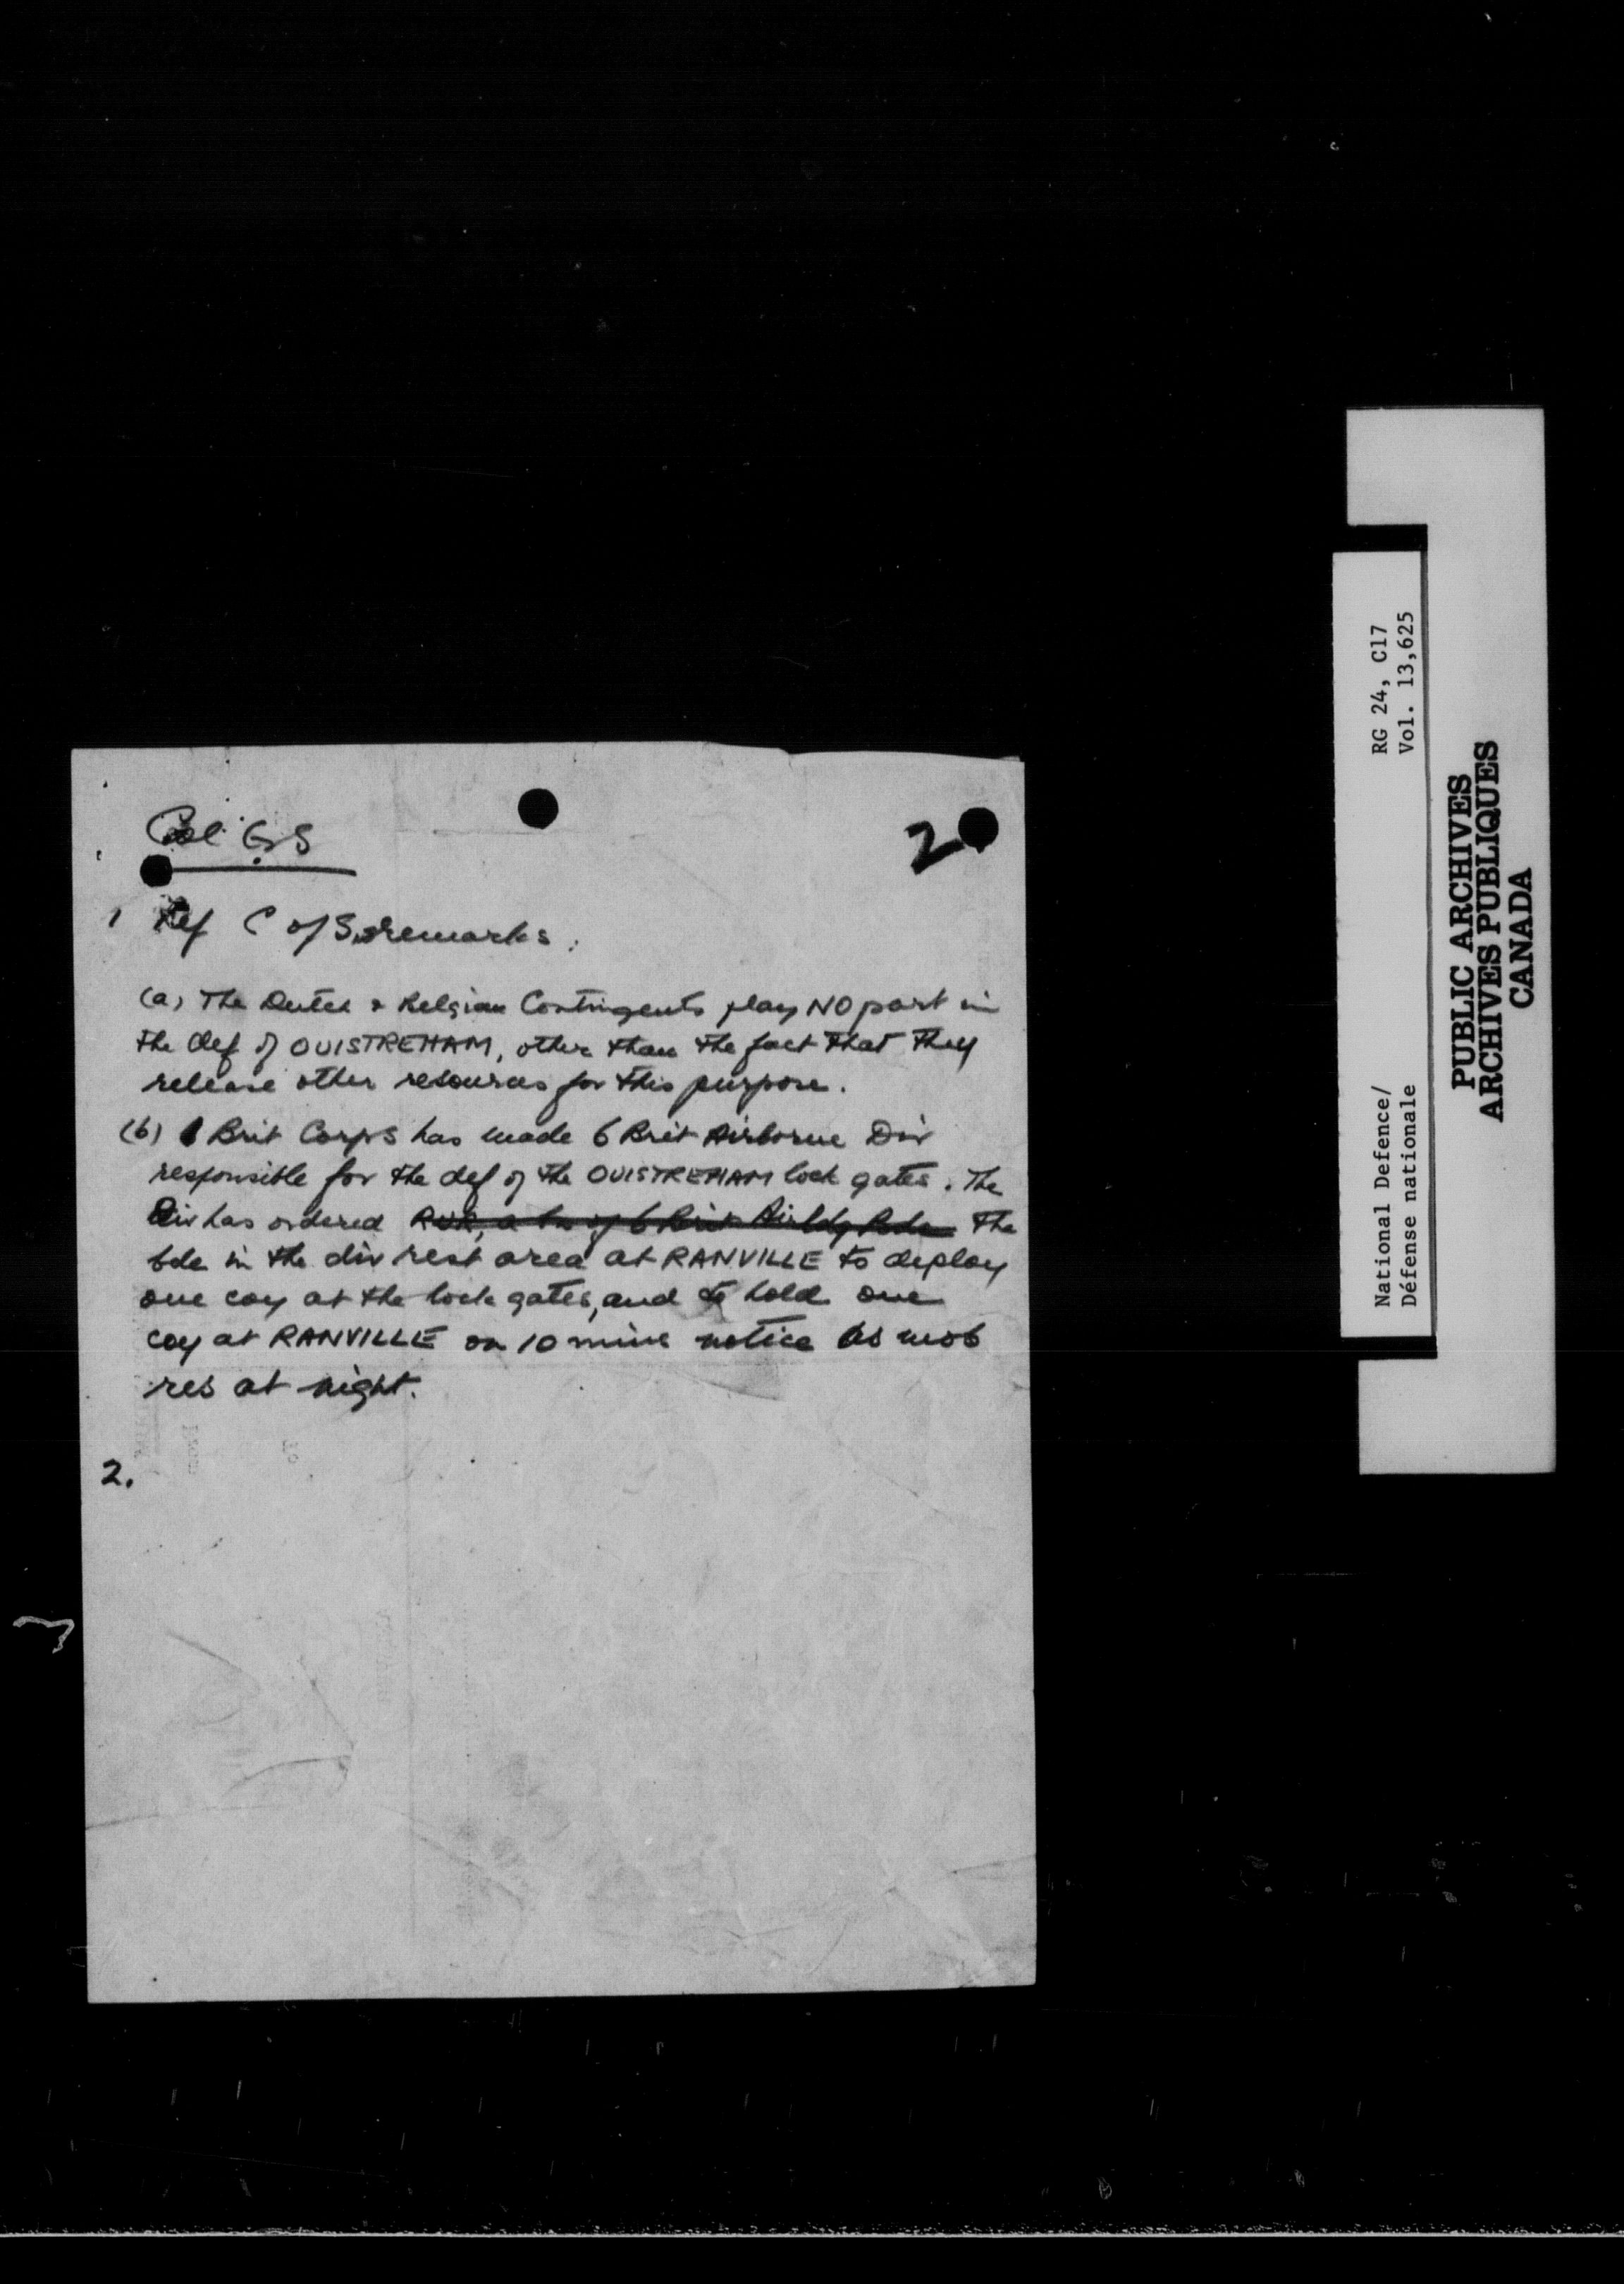 Col GS
2
1 Ref C of S remarks.
(a) The Dutch & Belgian Contingents play NO part in
the def of OUISTREHAM, other than the fact that they
release other resources for this purpose.
(b) 1 Brit Corps has made 6 Brit Airborne Div
responsible for the def of the OUISTREHAM lock gates. The
Div has ordered RUR, a bn of 6 Brit Airldg Bde the
bde in the div rest area at RANVILLE to deploy
one coy at the lock gates, and to hold one
coy at RANVILLE on 10 mins notice as mob
res at night.
2.
National Defence/ RG 24, C17
Défense nationale Vol. 13,625
PUBLIC ARCHIVES
ARCHIVES PUBLIQUES
CANADA